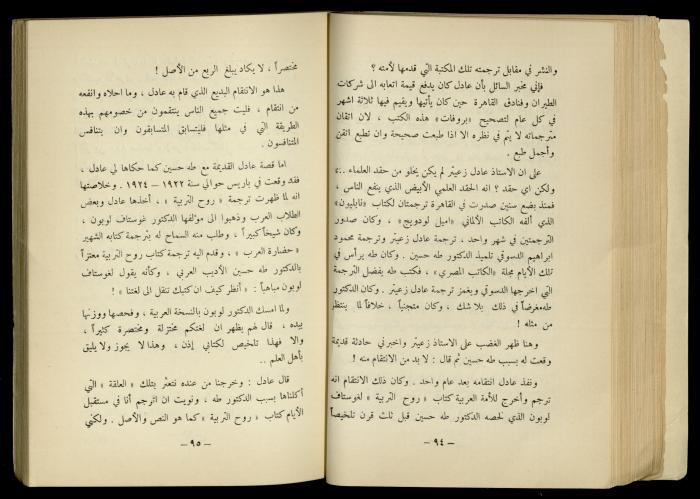 والنشر في مقابل ترجمته تلك المكتبة التي قدمها لأمته ؟
فإني مخبر السائل بأن عادل كان يدفع قيمة اتعابه الى شركات
الطيران وفنادق القاهرة حين كان يأتيها ويقيم فيها ثلاثة اشهر
في كل عام لتصحيح « بروفات » هذه الكتب ، لان اتقان
مترجماته لا يتم في نظره الا اذا طبعت صحيحة وان تطبع اتقن
وأجمل طبع .
على ان الاستاذ عادل زعيتر لم يكن يخلو من حقد العلماء ..
ولكن اي حقد ؟ انه الحقد العلمي الأبيض الذي ينفع الناس ،
فمنذ بضع سنين صدرت في القاهرة ترجمتان لكتاب «نابليون»
الذي ألفه الكاتب الألماني «اميل لودويج» ، وكان صدور
الترجمتين في شهر واحد ، ترجمة عادل زعيتر وترجمة محمود
ابراهيم الدسوقي تلميذ الدكتور طه حسين . وكان طه يرأس في
تلك الأيام مجلة «الكاتب المصري» ، فكتب طه يفضل الترجمة
التي اخرجها الدسوقي ويغمز ترجمة عادل زعيتر . وكان الدكتور
طه مغرضاً في ذلك بلا شك ، وكان متجنياً ، خلافاً لما ينتظر
من مثله !
وهنا ظهر الغضب على الاستاذ زعيتر واخبرني حادثة قديمة
وقعت له بسبب طه حسين ثم قال : لا بد من الانتقام منه !
ونفذ عادل انتقامه بعد عام واحد . وكان ذلك الانتقام انه
ترجم وأخرج للأمة العربية كتاب « روح التربية » لغوستاف
لوبون الذي لخصه الدكتور طه حسين قبل ثلث قرن تلخيصاً
- ٩٤ -
مختصراً ، لا يكاد يبلغ الربع من الأصل !
هذا هو الانتقام البديع الذي قام به عادل ، وما احلاه وانفعه
من انتقام ، فليت جميع الناس ينتقمون من خصومهم بهذه
الطريقة التي في مثلها فليتسابق المتسابقون وان يتنافس
المتنافسون .
اما قصة عادل القديمة مع طه حسين كما حكاها لي عادل ،
فقد وقعت في باريس حوالي سنة ١٩٢٢ - ١٩٢٤ . وخلاصتها
انه لما ظهرت ترجمة « روح التربية » ، أخذها عادل وبعض
الطلاب العرب وذهبوا الى مؤلفها الدكتور غوستاف لوبون ،
وكان شيخاً كبيراً ، وطلب منه السماح له بترجمة كتابه الشهير
« حضارة العرب » ، وقدم اليه ترجمة كتاب روح التربية معتزاً
بالدكتور طه حسين الأديب العربي ، وكأنه يقول لغوستاف
لوبون مباهياً : « أنظر كيف ان كتبك تنقل الى لغتنا » !
ولما امسك الدكتور لوبون بالنسخة العربية ، وفحصها ووزنها
بيده ، قال لهم يظهر ان لغتكم مختزلة ومختصرة كثيراً ،
والا فهذا تلخيص لكتابي إذن ، وهذا لا يجوز ولا يليق
بأهل العلم ..
قال عادل : وخرجنا من عنده نتعثر بتلك « العلقة » التي
أكلناها بسبب الدكتور طه ، ونويت ان اترجم أنا في مستقبل
الأيام كتاب « روح التربية » كما هو النص والأصل . ولكني
- ٩٥ -